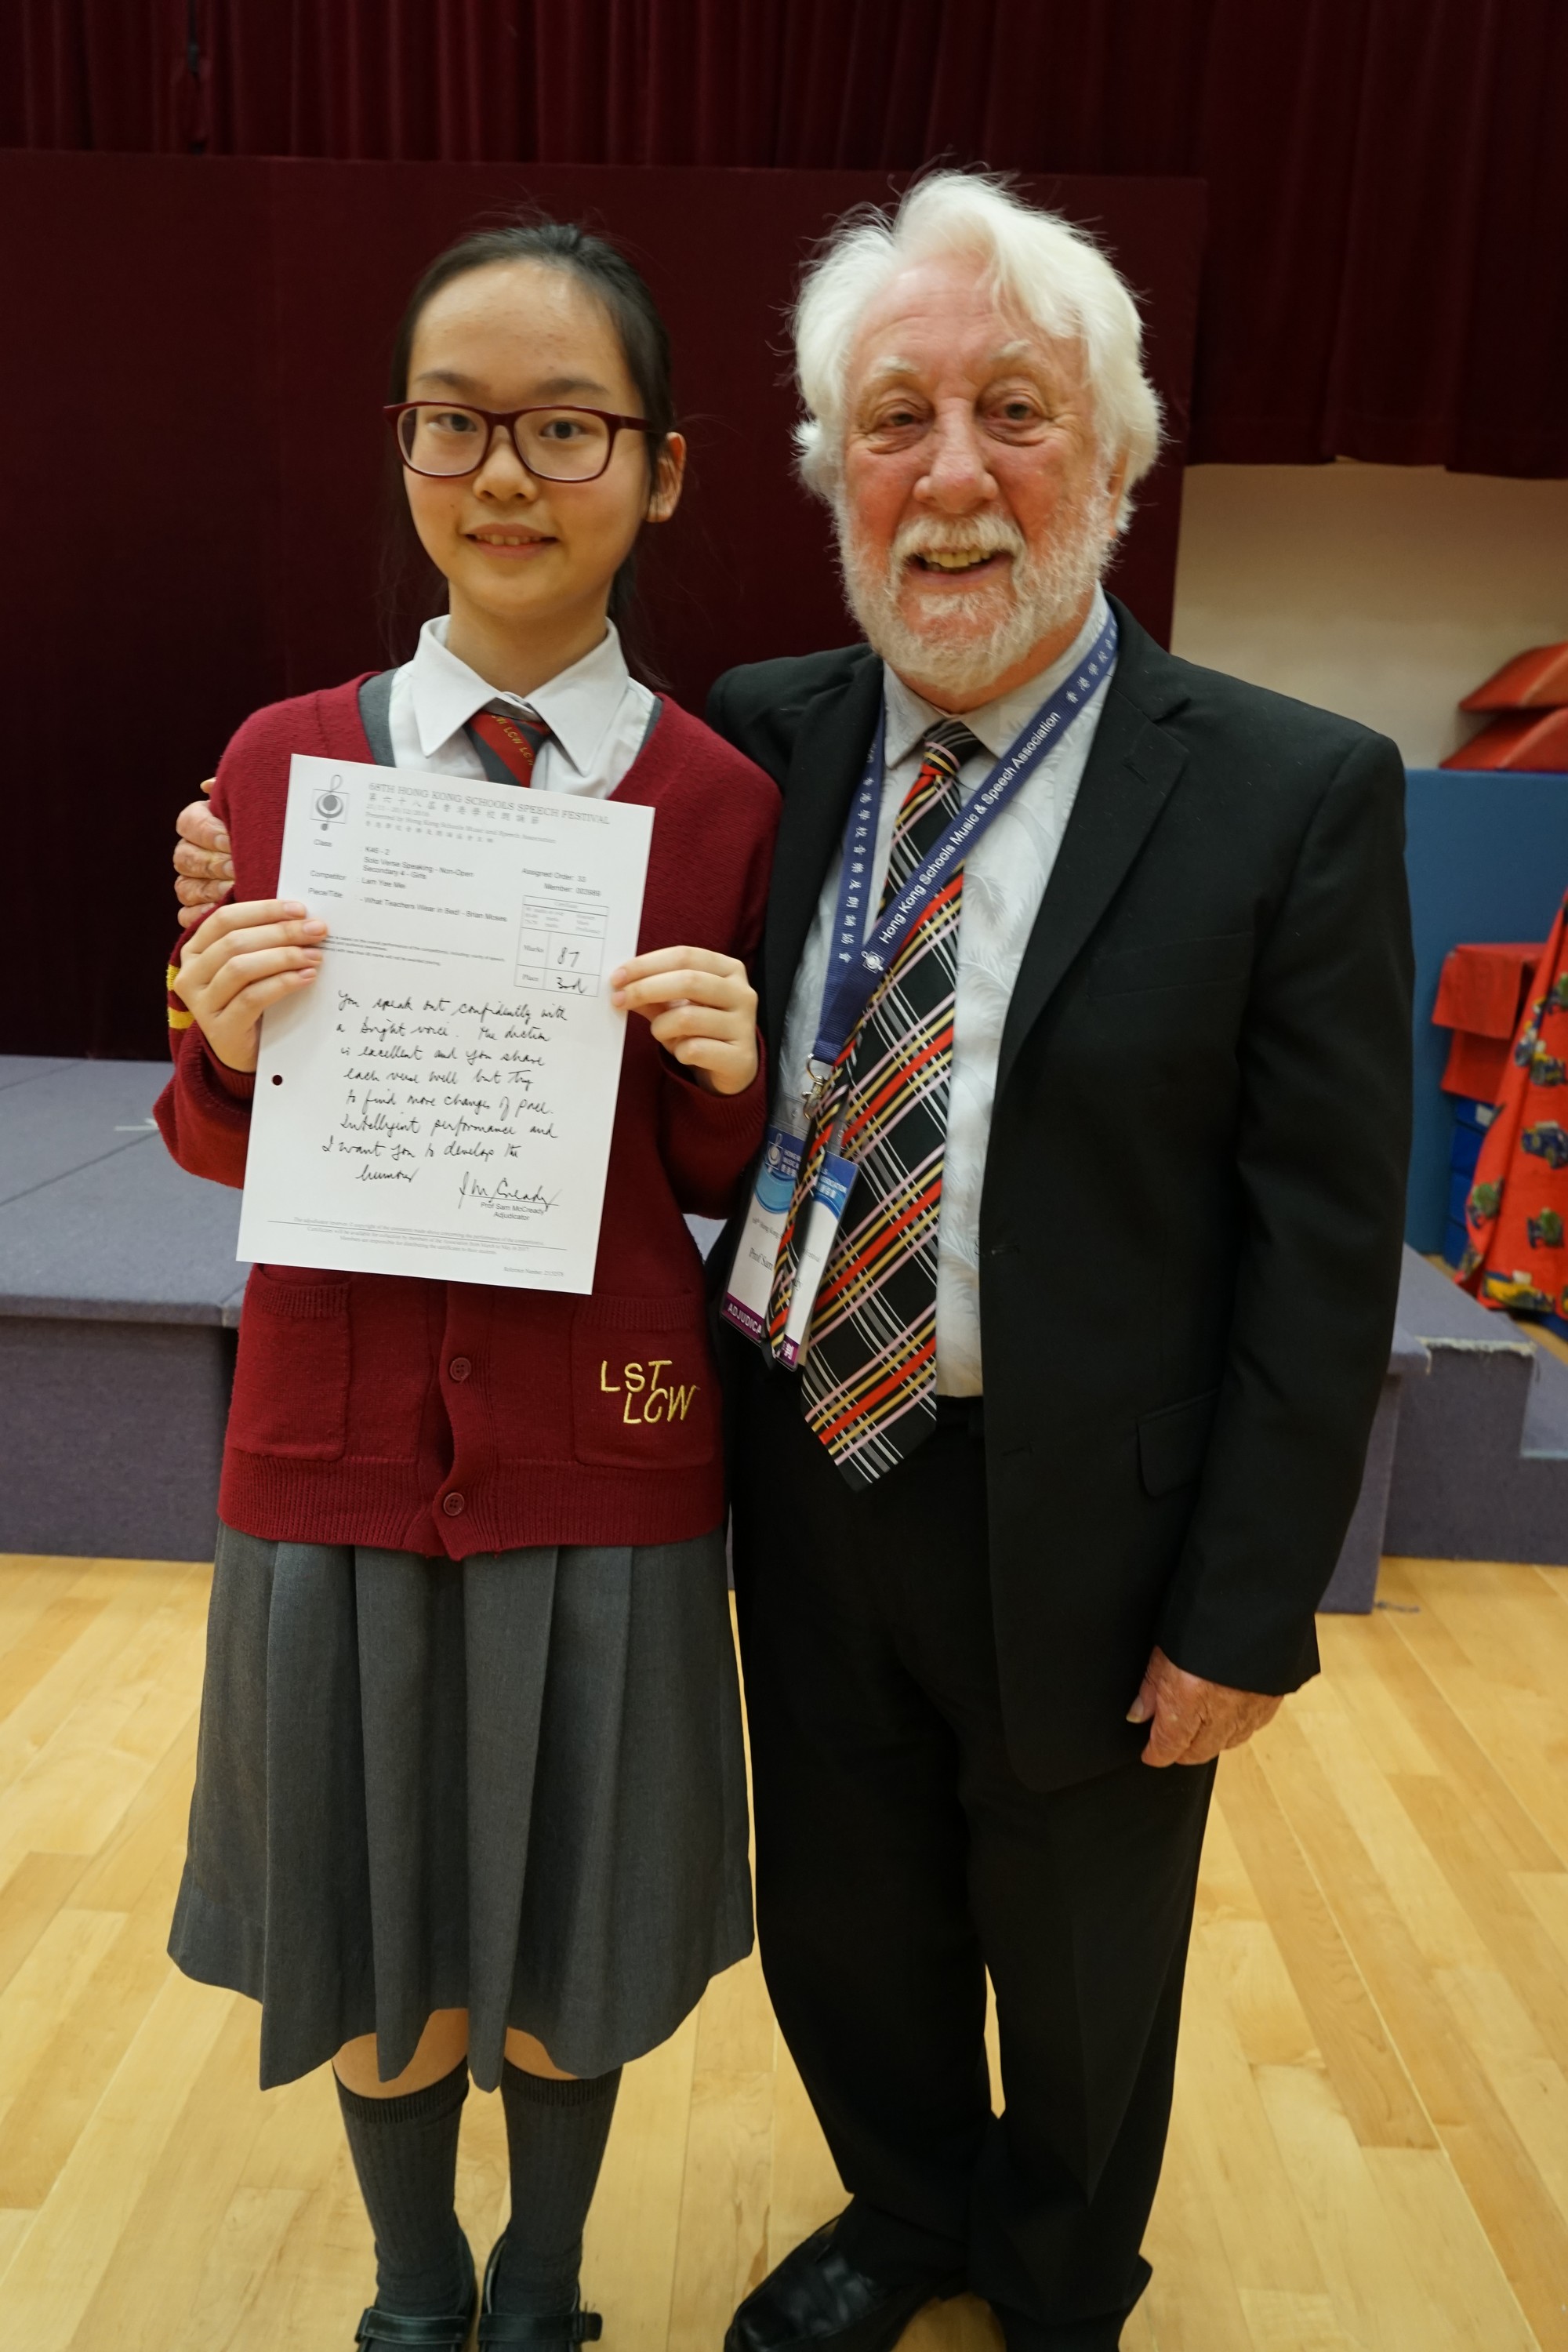 68TH HONG KONG SCHOOLS SPEECH FESTIVAL
第六十八屆香港學校朗誦節
Presented by Hong Kong Schools Music and Speech Association
香港學校音樂及朗誦協會主辦
Class K46 - 2
Solo Verse Speaking - Non-Open
Secondary 4 - Girls
Assigned Order: 33
Competitor : Lam Yee Mei
Member:
Piece/Title : What Teachers Wear in Bed! - Brian Moses
Marks 87
Place 3rd
You speak out confidently with
a bright voice. The diction
is excellent and you share
each verse well but try
to find more changes of pace.
Intelligent performance and
I want you to develop the
humour
Prof Sam McCready
Adjudicator
LST
LCW
LCW LCW
Hong Kong Schools Music & Speech Association
香港學校音樂及朗誦協會
Prof Sam
ADJUDICA